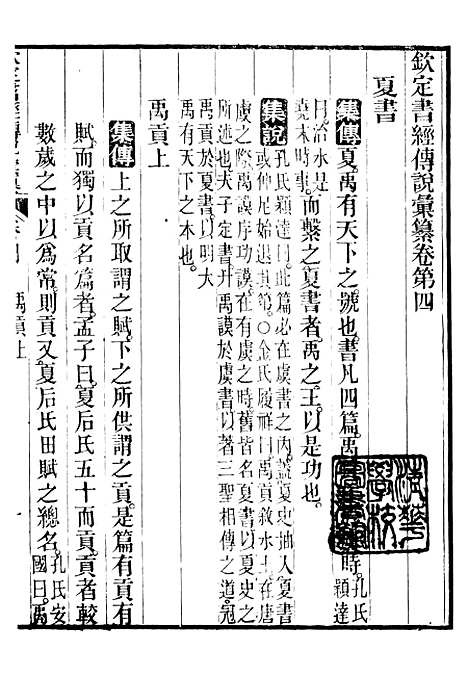 欽定書經傳說彙纂卷第四
夏書
集傳夏禹有天下之號也書凡四篇禹時孔氏
穎達
曰治水是
堯末時事而繫之夏書者禹之王以是功也
集說孔氏穎達曰此篇必在虞書之內蓋夏史抽入夏書
或仲尼始退其第○金氏履祥曰禹貢敘水土在唐
虞之際禹謨序功謨在有虞之時舊皆名夏書以夏史之
所述也夫子定書升禹謨於虞書以著三聖相傳之道冠
禹貢於夏書以明大
禹有天下之本也
禹貢上
集傳上之所取謂之賦下之所供謂之貢是篇有貢有
賦而獨以貢名篇者孟子曰夏后氏五十而貢貢者較
數歲之中以爲常則貢又夏后氏田賦之總名孔氏安
國曰禹
禹貢上
清華學校圖書館